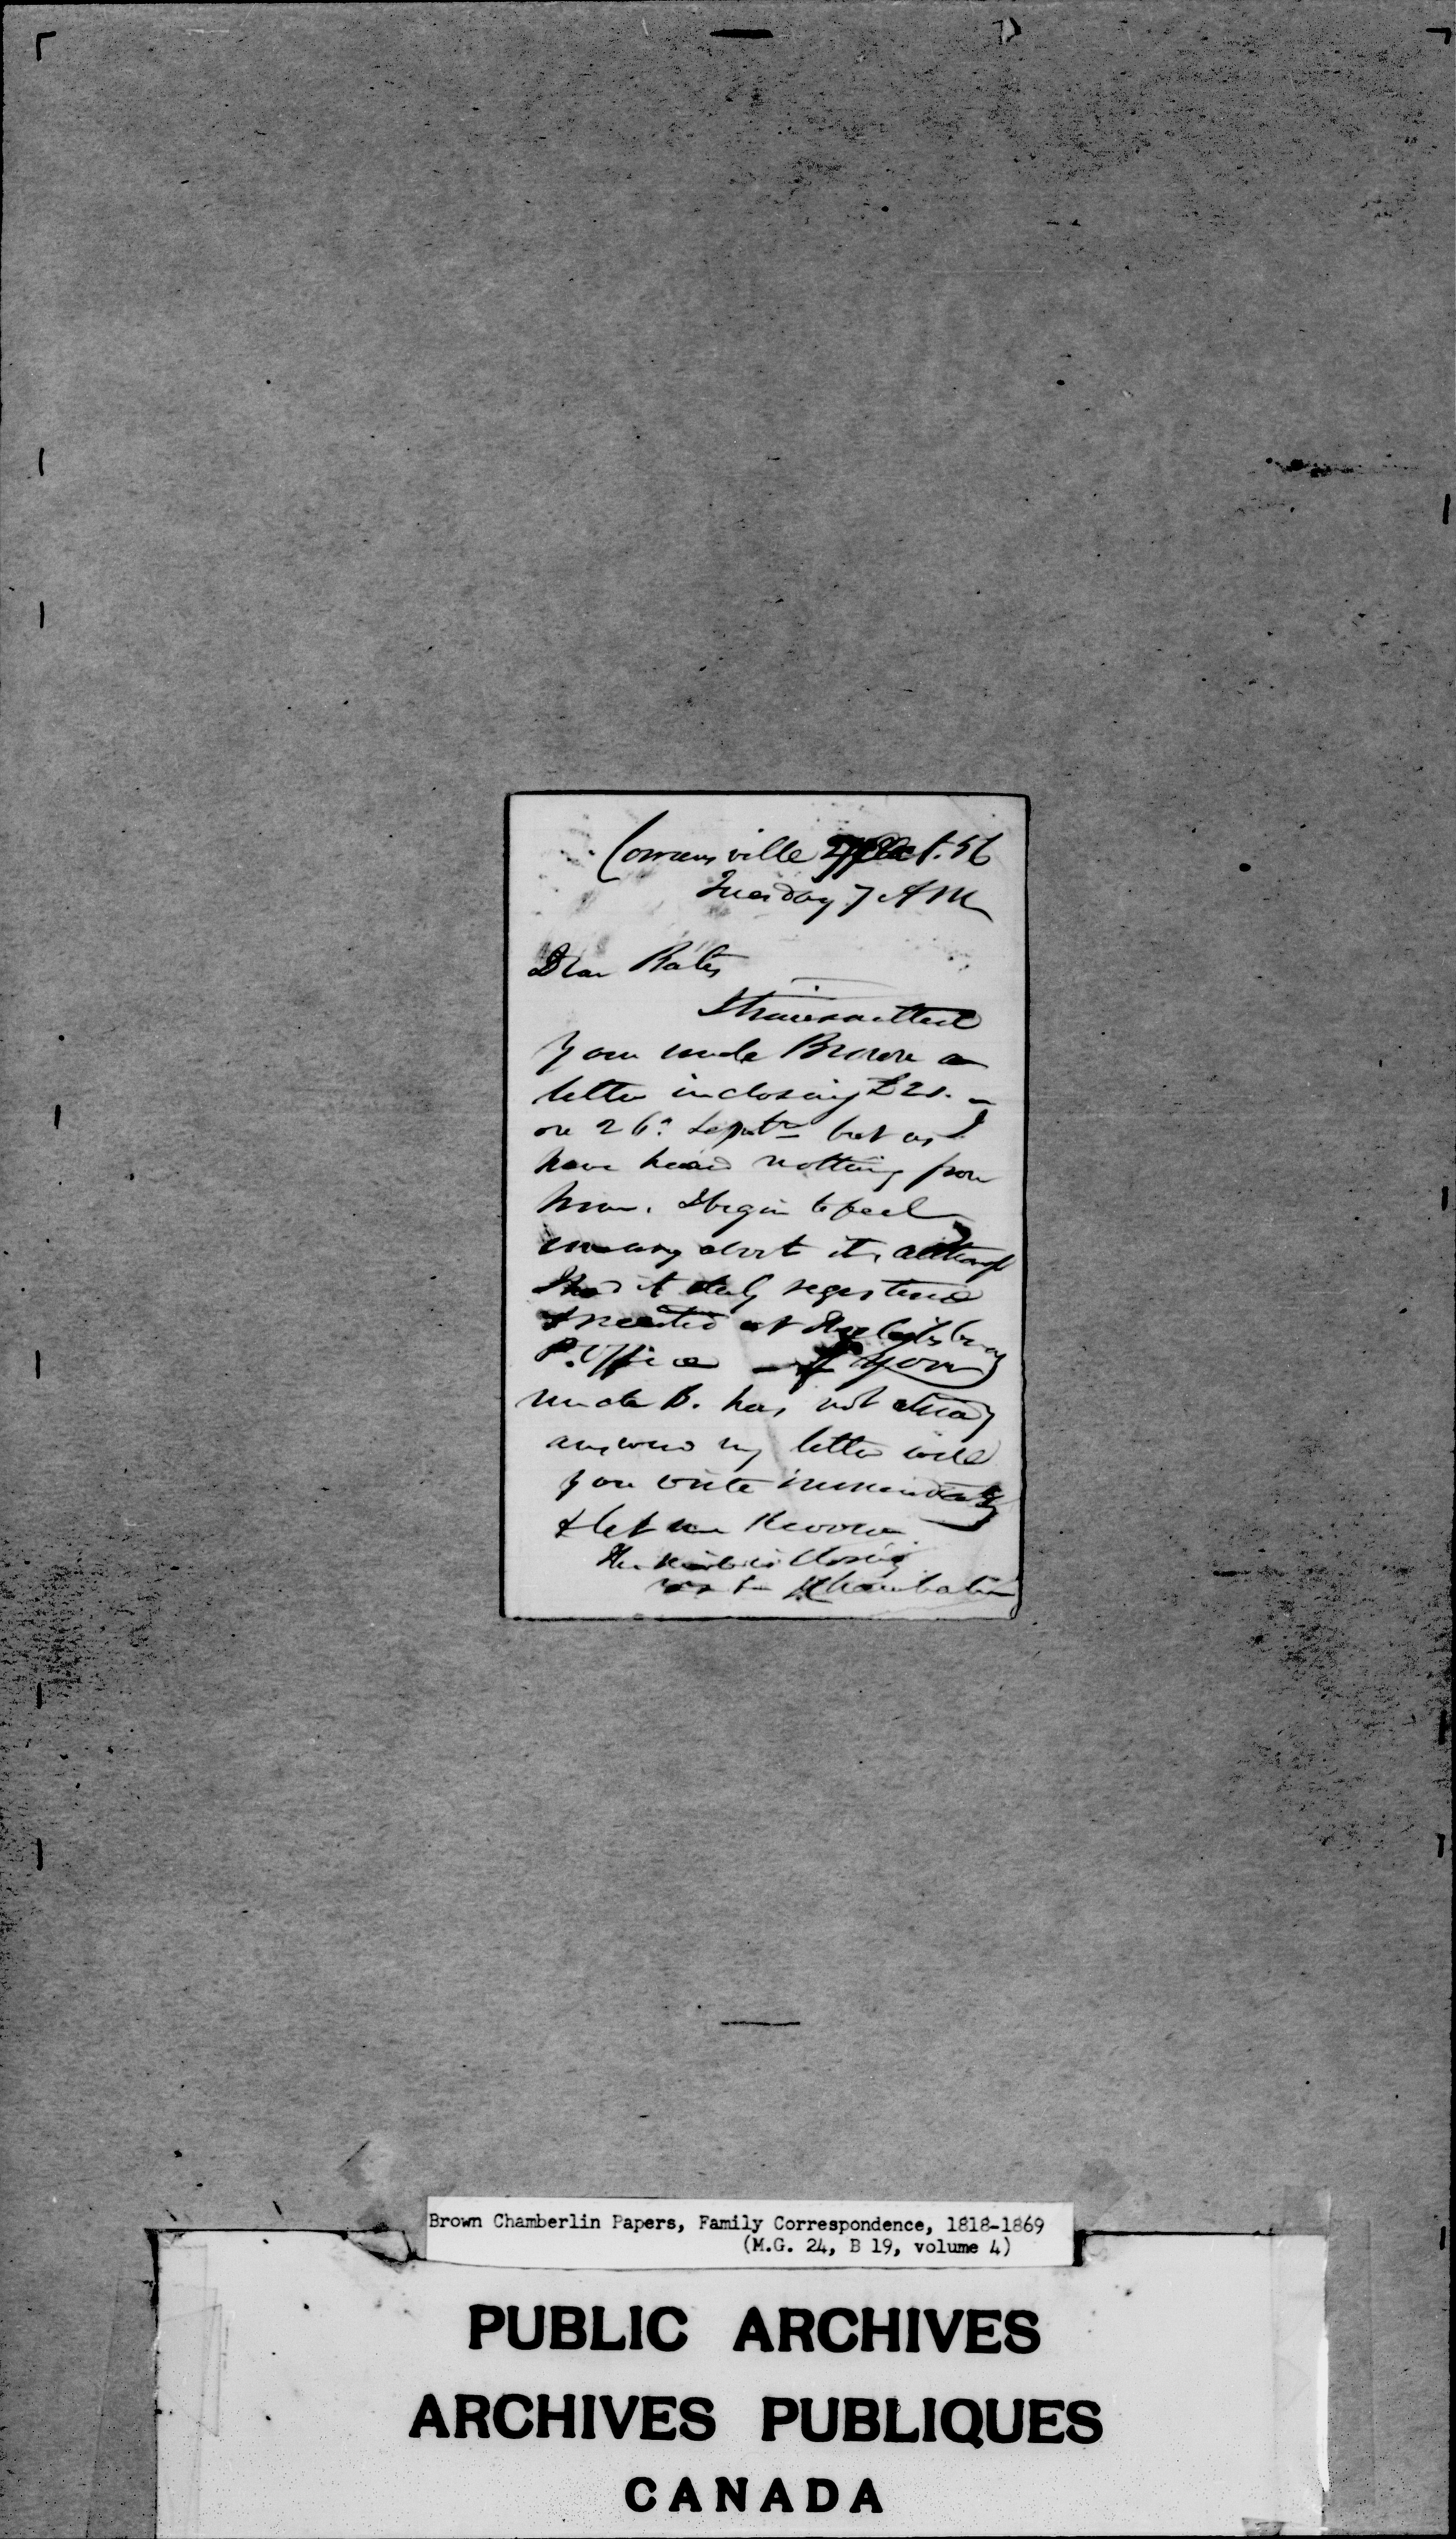 Cowansville Oct. 56
Tuesday 7 AM
Dear Bates
I transmitted
your uncle Brown a
letter inclosing £21. –
on 26th Septr but as I
have heard nothing from
him. I begin to feel
uneasy about it, although
I had it duly registered
& receipted at Frelighsburg
P. Office — If your
uncle B. has not already
answered my letter will
you write immediately
& let me know
The mail is closing
Chamberlin
Brown Chamberlin Papers, Family Correspondence, 1818-1869
(M.G. 24, B 19, volume 4)
PUBLIC ARCHIVES
ARCHIVES PUBLIQUES
CANADA